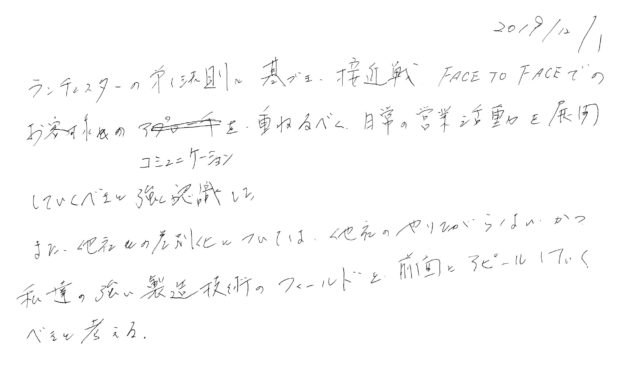 2019/12/1
ランチェスターの第1法則に基づき、接近戦 FACE TO FACEでの
お客様との アプローチを、重ねるべく、日常の営業活動を展開
コミュニケーション
していくべきと強く認識した
また、他社との差別化については、他社のやりたがらない、かつ
私達の強い製造技術のフィールドを、前面にアピールしていく
べきと考える。